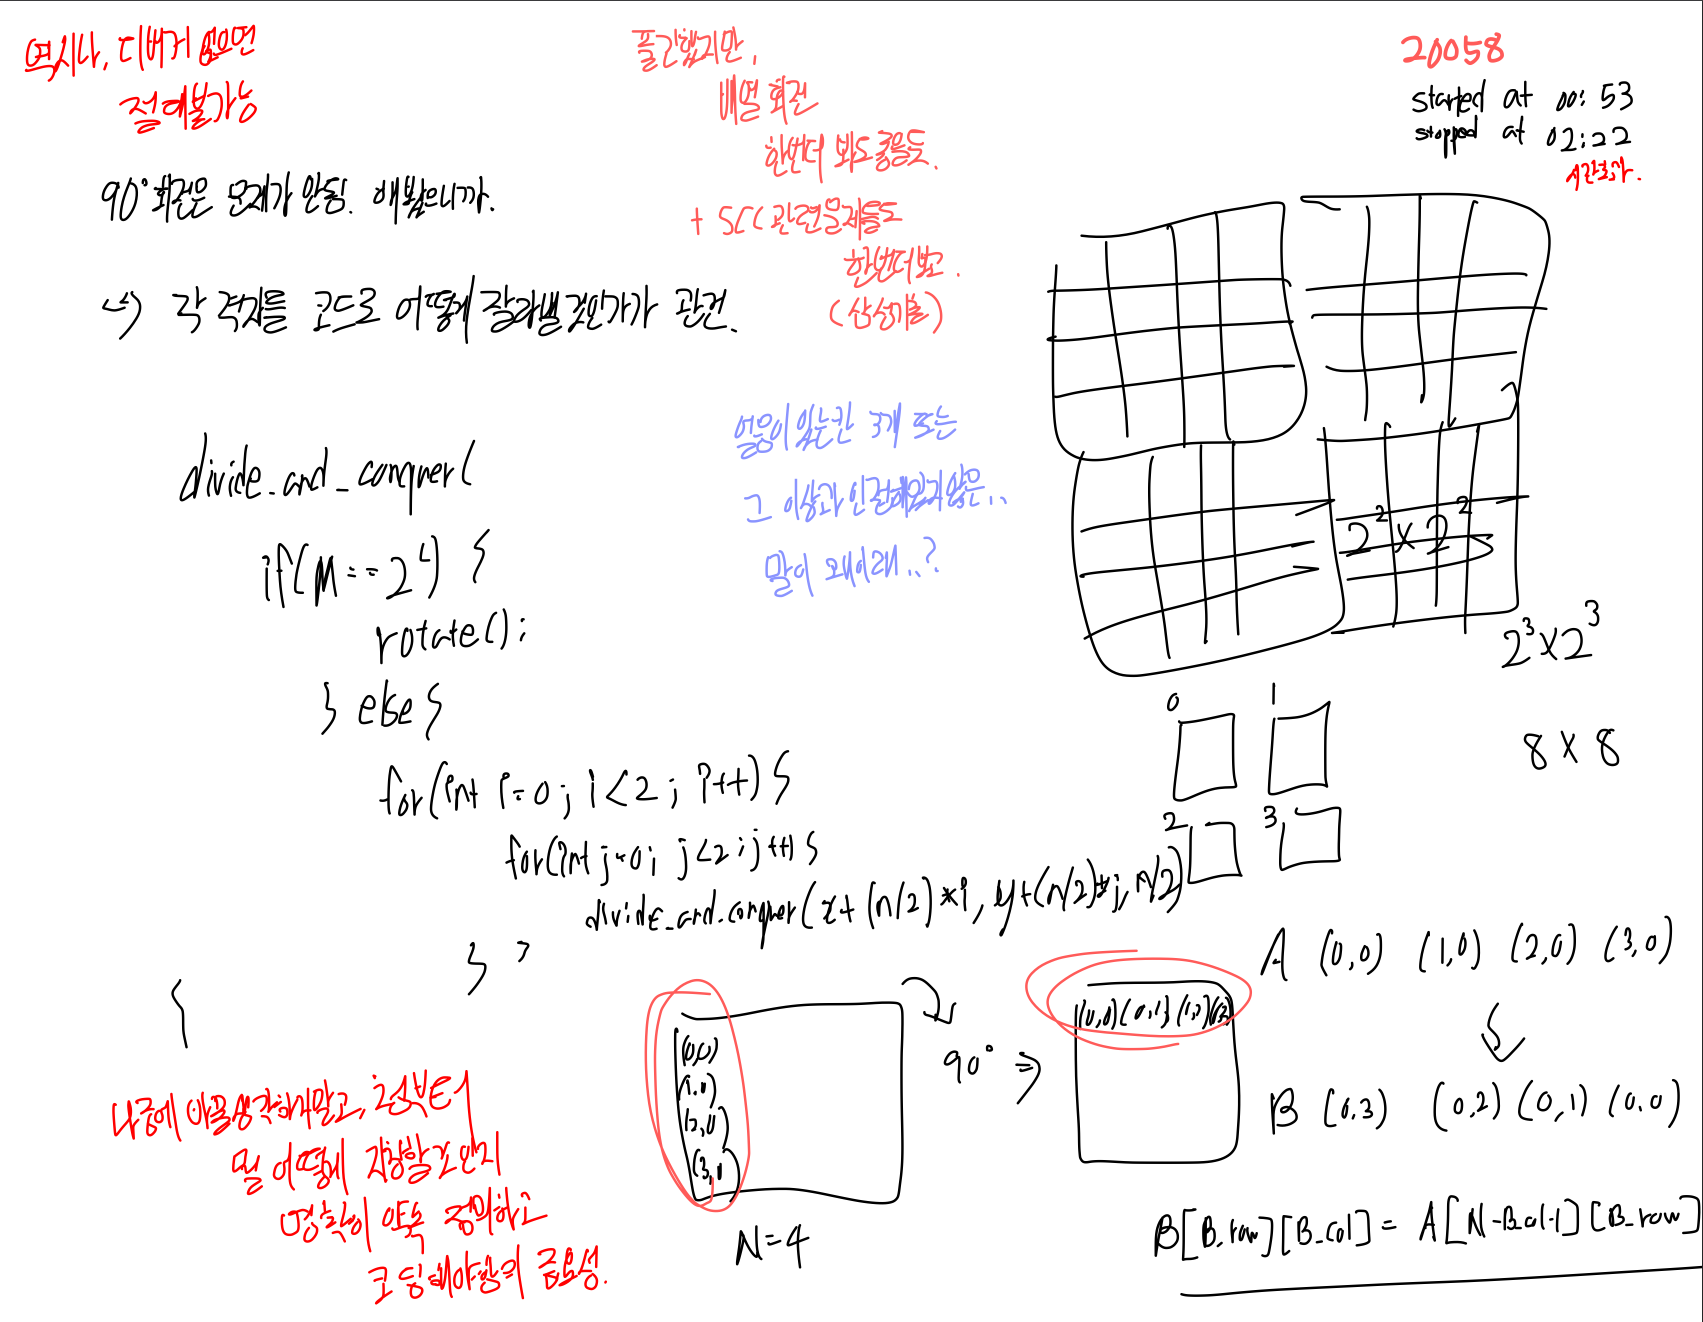 역시나, 디버거 없으면
절대불가능
풀긴했지만,
배열 회전
한번더 봐도 좋을듯.
+ SCC 관련문제들도
한번더보고.
(산성기출)
20058
started at 00:53
stopped at 02:22
시간초과.
90° 회전은 문제가 안됨. 해봤으니까.
↪ 각 격자를 코드로 어떻게 잘라낼것인가가 관건.
얼음이 있는칸 3개 또는
그 이상과 인접해있지않은..
말이 왜이래..?
divide_and_conquer(
if(n==2^L) {
rotate();
} else {
for(int i=0; i<2; i++) {
for(int j=0; j<2; j++) {
divide_and_conquer(x+(n/2)*i, y+(n/2)*j, n/2)
} }
}
2²×2²
2³×2³
8×8
0 1
2 3
(0,0)
(1,0)
(2,0)
(3,0)
N=4
90° ⇒
(0,0) (0,1)
A (0,0) (1,0) (2,0) (3,0)
B (0,3) (0,2) (0,1) (0,0)
B[B_row][B_col] = A[N-B_col-1][B_row]
나중에 바꿀생각하지말고, 첨부터
뭘 어떻게 저장할것인지
명확히 약속 정의하고
코딩해야함의 중요성.